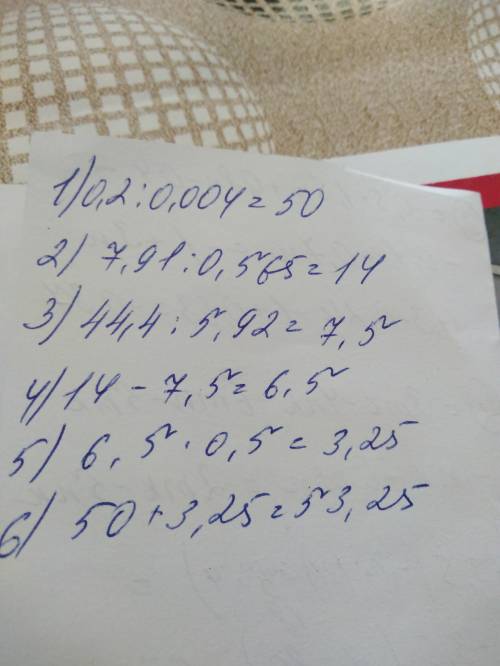 1) 0,2:0,004=50
2) 7,91:0,565=14
3) 44,4:5,92=7,5
4) 14-7,5=6,5
5) 6,5·0,5=3,25
6) 50+3,25=53,25